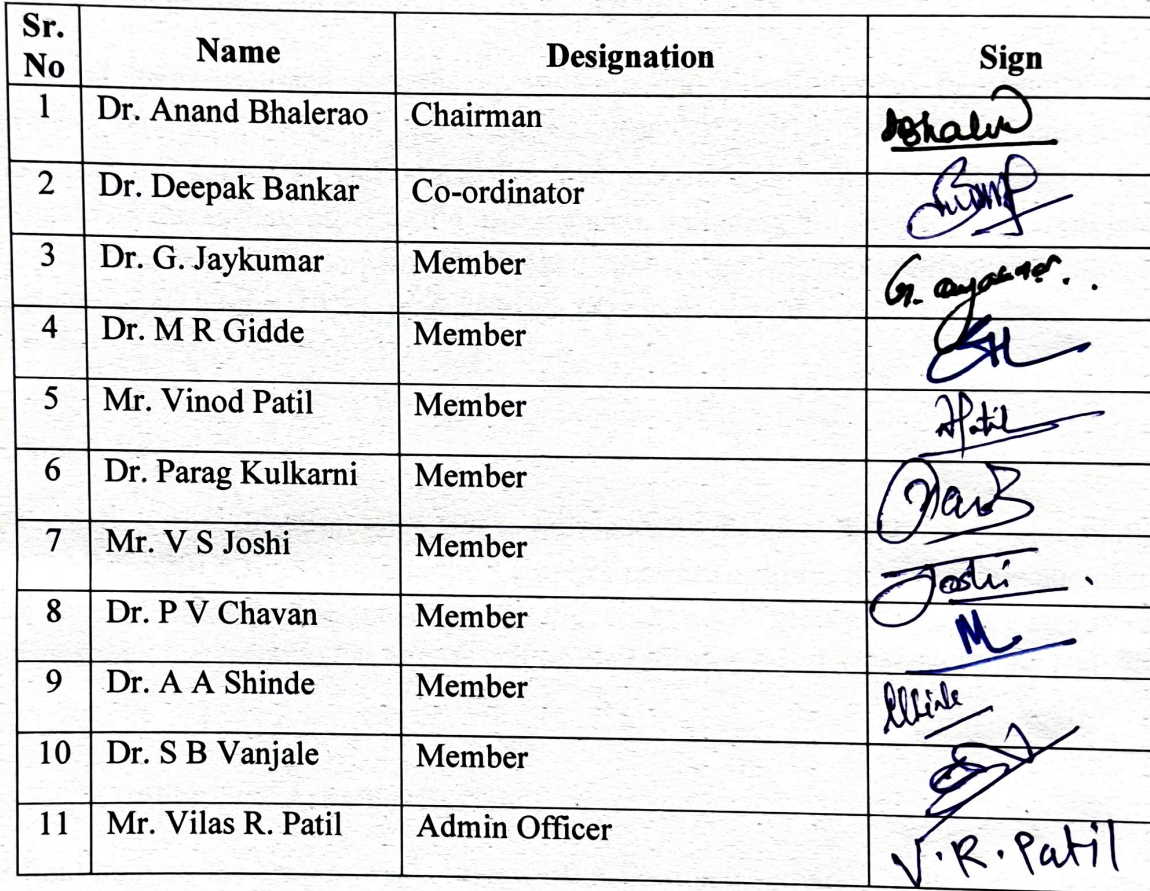 Sr. No Name Designation Sign
1 Dr. Anand Bhalerao Chairman
2 Dr. Deepak Bankar Co-ordinator
3 Dr. G. Jaykumar Member
4 Dr. M R Gidde Member
5 Mr. Vinod Patil Member
6 Dr. Parag Kulkarni Member
7 Mr. V S Joshi Member Joshi
8 Dr. P V Chavan Member
9 Dr. A A Shinde Member
10 Dr. S B Vanjale Member
11 Mr. Vilas R. Patil Admin Officer V.R. Patil